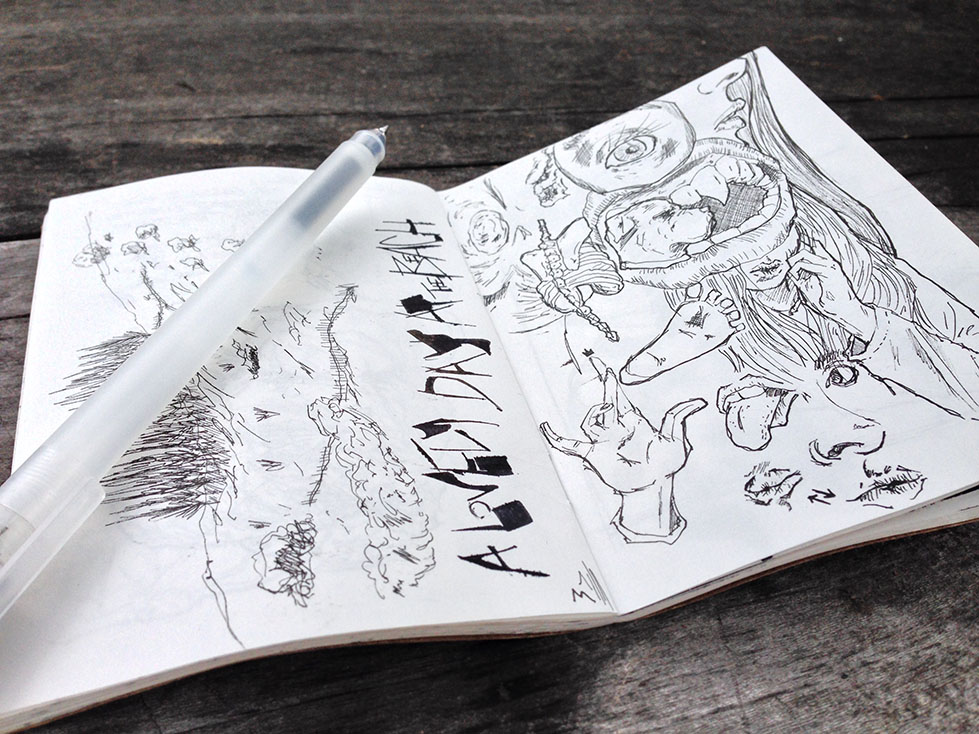 A LOVELY DAY AT THE BEACH